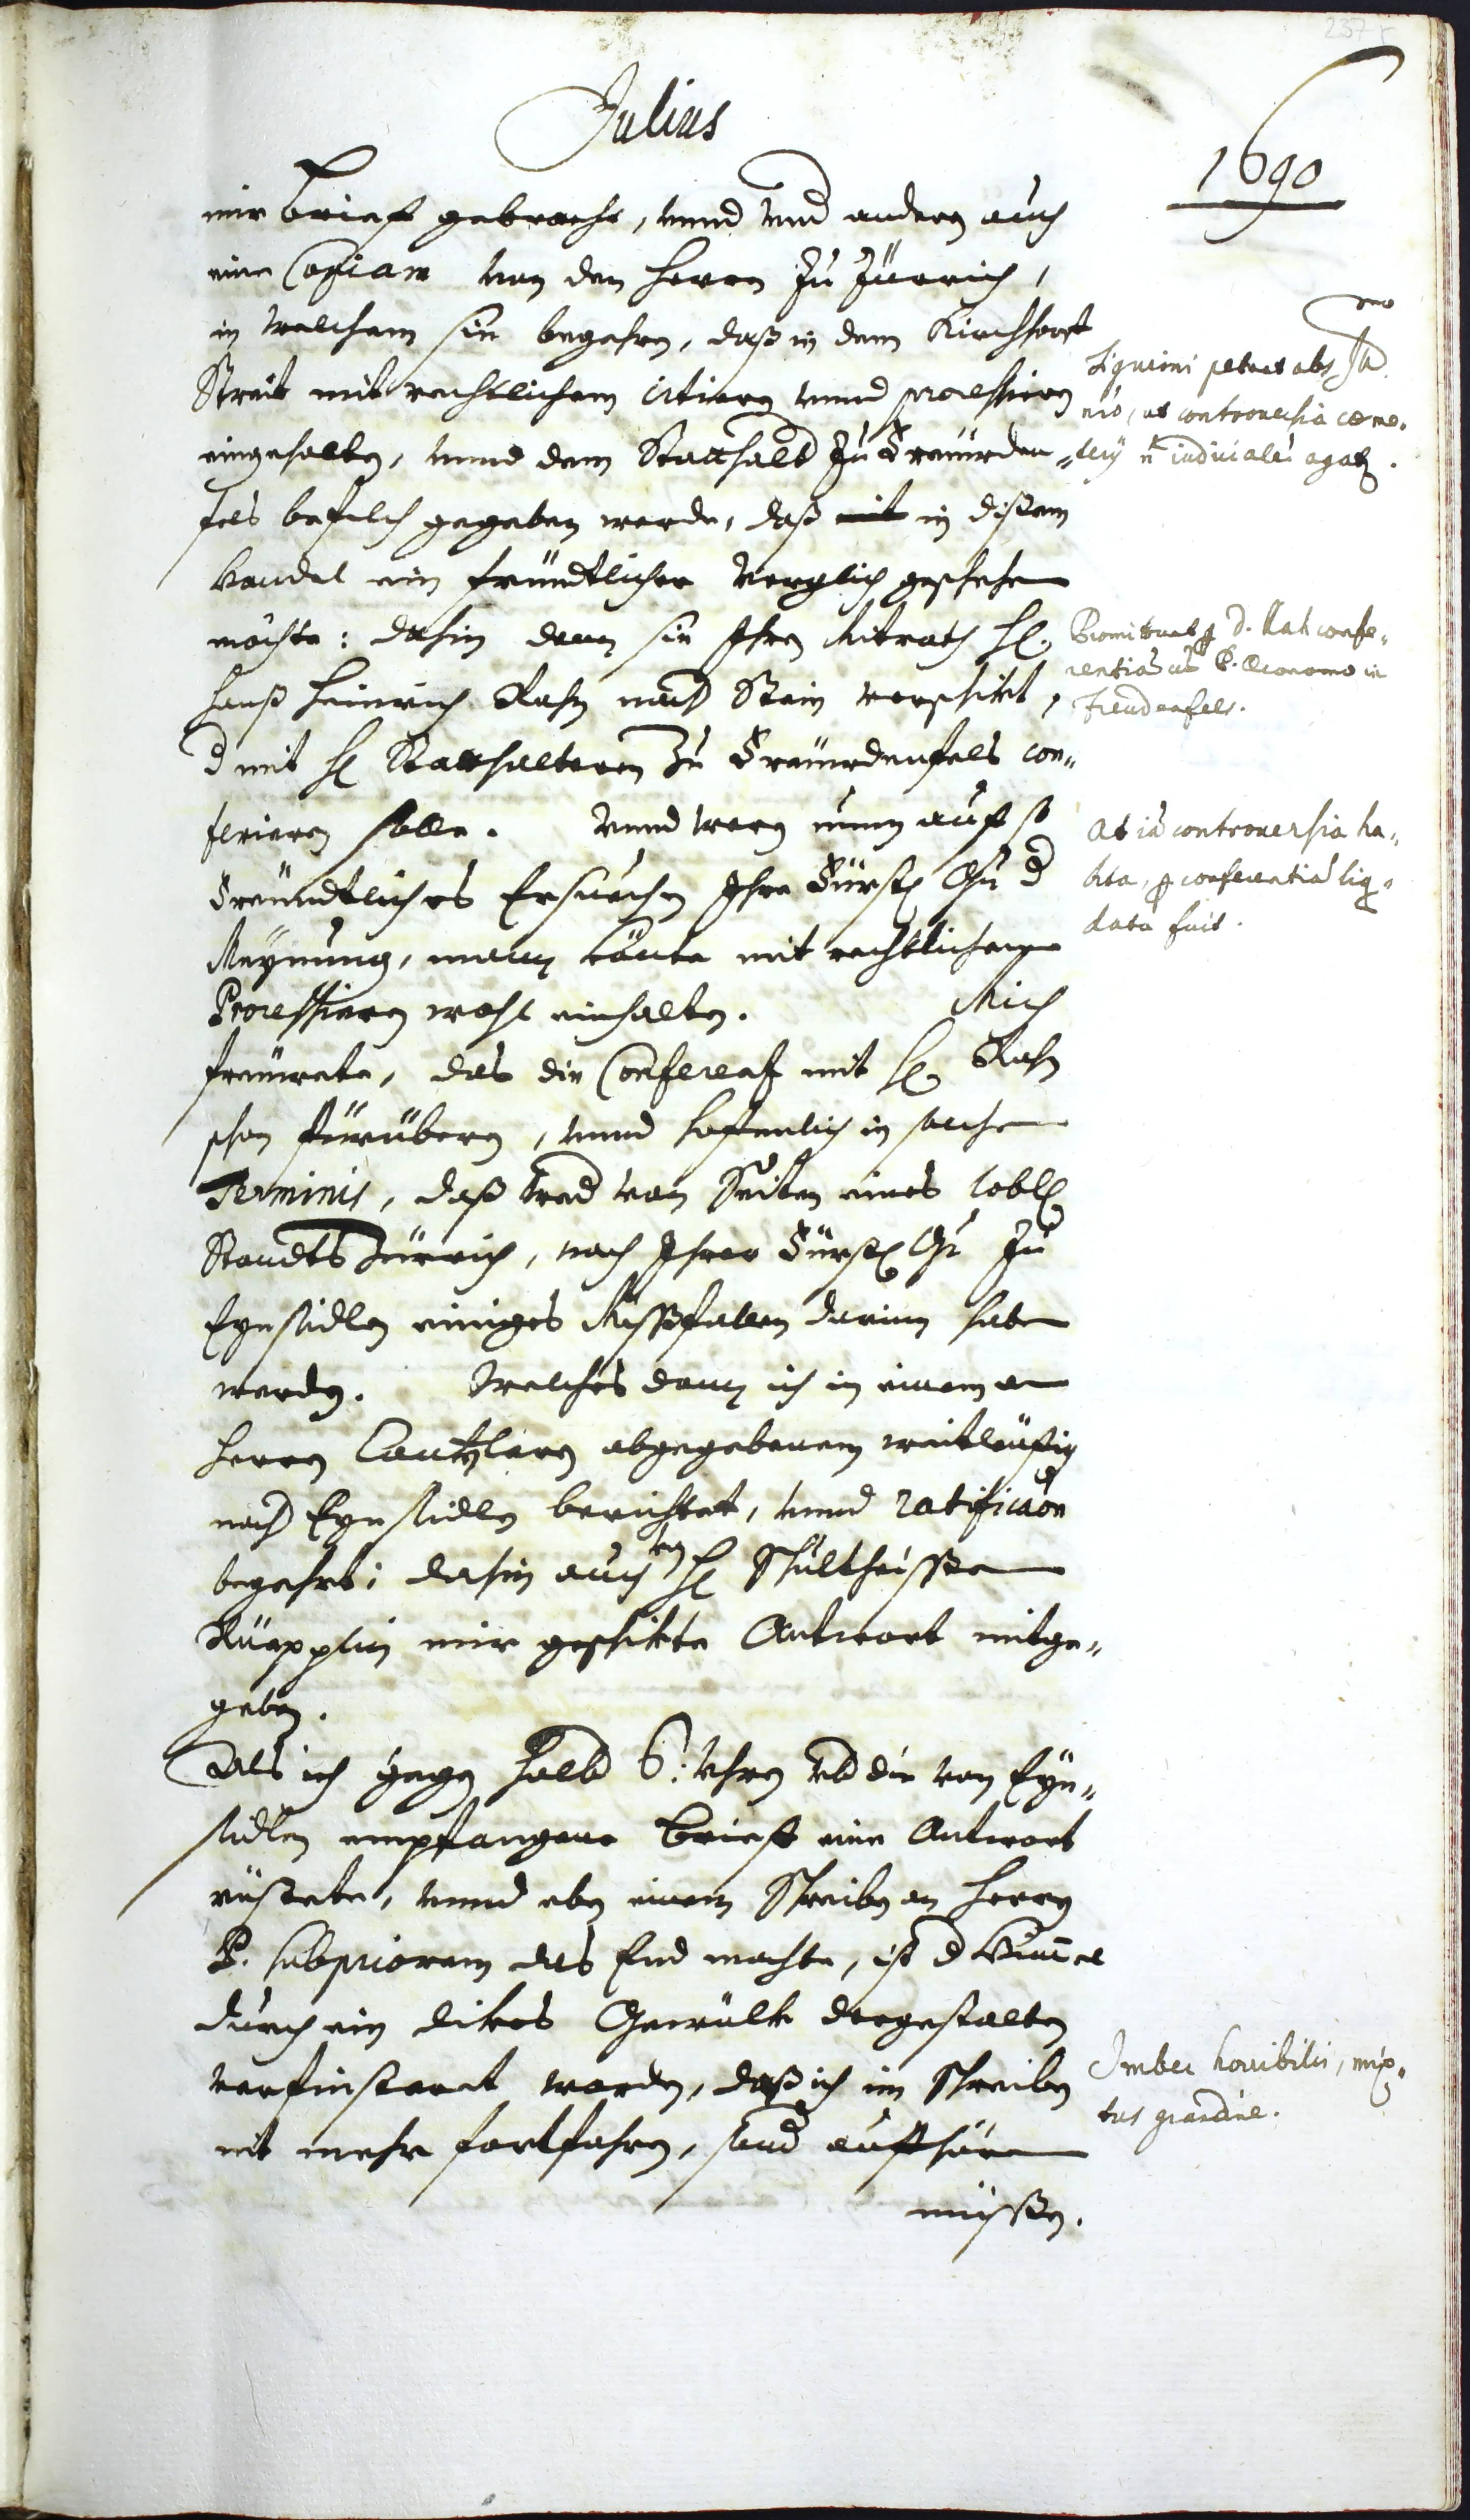 237 r
Julius
1690
mir brieff gebracht, unnd und andern auch
eine Copiam von den Herren zu Züerich,
in welchem sie begehren, daß in dem Kirchhoff
Streit mit rechtlichem citieren unnd processieren
eingehalten, unnd dem Statthalt zu Freüwden„
fels befelch gegeben werde, daß mit in dißem
Handel ein fründtlicher verglich geschehen
möchte: dahin dann sie Ihren Mitrath H.
Hanß Heinrich Rahn nacher Stein verschikt,
d mit H Statthalteren zu Freüwdenfels con„
ferieren solle. Unnd waren nunn auff so
Freündtliches Ersuechen Ihre Fürstl Gn d
Meÿnung, mann könte mit rechtlichem
Processieren wohl einhalten. Mich
freüwete, das die Conferentz mit H. Rahn
schon fürüberen, unnd hoffenlich in solchen
Terminis, daß wed von Seiten eines lobl
Standts Zürich, noch Ihrer Fürstl Gn zu
Eynsidlen einiges Mißfallen darinn haben
werden. Welches dann ich in einem
Herren Cantzleren abgegebenem weitläüfig
nacher Eynsidlen berichtet, unnd ratificaon
begehrt; dahin auch von H Schultheissen
Rüepplin mir geschikte Antwort mitge„
geben.
Als ich gegen halb 6. Uhren ub die von Eyn„
sidlen empfangene brieff eine Antwort
rüstete, unnd eben einem Schreiben an Herren
P. Subpriorem das End machte, ist d Himel
durch ein dikes Gewülk dergestalten
verfinsteret worden, daß ich im Schreiben
nit mehr fortfahren, sond auffhören
müssen.
Tigurini petunt abs
nio, ut controversia coeme„
terij nt iudicialr agatr.
Promittunt p D. Rah confe„
rentiā cū P. Oeconomo in
Freudenfels.
At iā controversia ha„
bita p conferentiā liq„
data fuit.
Imber horribilis, mix„
tus grandine.